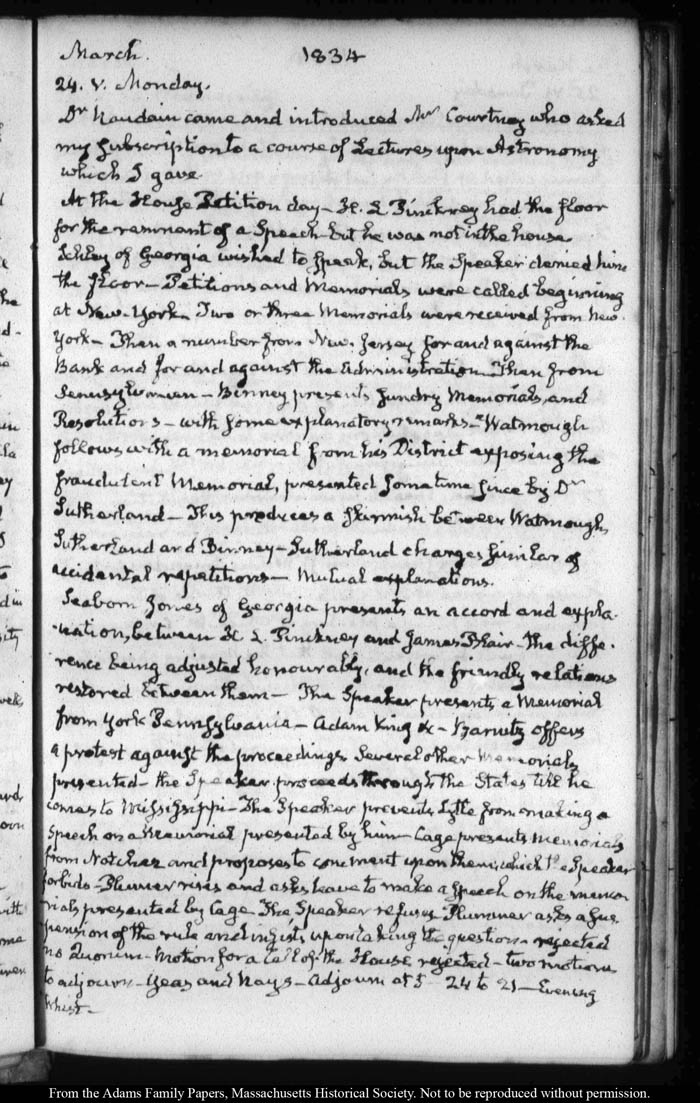 March. 1834
24. V. Monday.
Dr Naudain came and introduced Mr Courtney who asked
my Subscription to a course of Lectures upon Astronomy
which I gave.
At the House Petition day — H. L Pinckney had the floor
for the remnant of a Speech but he was not in the house.
Schley of Georgia wished to speak, but the Speaker denied him
the floor — Petitions and Memorials were called beginning
at New-York. Two or three Memorials were received from New-
York — Then a number from New-Jersey for and against the
Bank and for and against the Administration. Then from
Binney presents sundry Memorials and
Resolutions — with some explanatory remarks — Watmough
follows with a memorial from his District exposing the
fraudulent Memorial, presented sometime since by Dr
Sutherland — This produces a skirmish between Watmough,
Sutherland and Binney — Sutherland charges similar of
accidental repetitions — Mutual explanations.
Seaborn Jones of Georgia presents an accord and expla-
nation, between H. L. Pinckney and James Blair — the diffe-
rence being adjusted honourably, and the friendly relations
restored between them — The Speaker presents a Memorial
from York Pennsylvania — Adam King &c — Barnitz offers
a protest against the proceedings. Several other Memorials
presented — the Speaker proceeds through the States till he
comes to Mississippi — The Speaker prevents Lytle from making a
Speech on a Memorial presented by him — Cage presents Memorials
from Natchez and proposes to comment upon them, which the Speaker
forbids — Plummer rises and asks leave to make a Speech on the memo-
rials presented by Cage. The Speaker refuses. Plummer asks a sus-
pension of the rule and insists upon taking the question — rejected
no Quorum — Motion for a Call of the House rejected — two motions
to adjourn — Yeas and Nays — Adjourn at 5 — 24 to 21 — Evening
Whist —
From the Adams Family Papers, Massachusetts Historical Society. Not to be reproduced without permission.